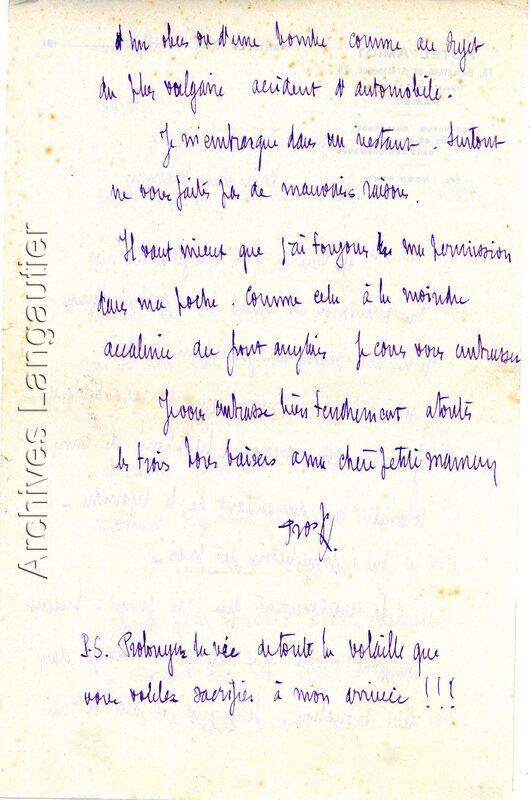 d'un obus ou d'une bombe comme au sujet
du plus vulgaire accident d'automobile.
Je m'embarque dans un instant. Surtout
ne vous faites pas de mauvaises raisons.
Il vaut mieux que j'ai toujours ma permission
dans ma poche. Comme cela à la moindre
accalmie du front anglais je cours vous embrasser
Je vous embrasse bien tendrement à toutes
les trois bons baisers a ma chère petite maman
P.S. Prolongez la vie de toute la volaille que
vous vouliez sacrifier à mon arrivée !!!
Archives Langautier